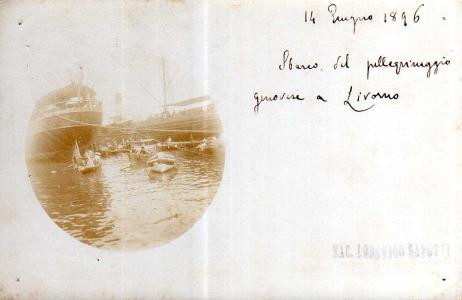 14 Giugno 1896.
Sbarco del pellegrinaggio
genovese a Livorno